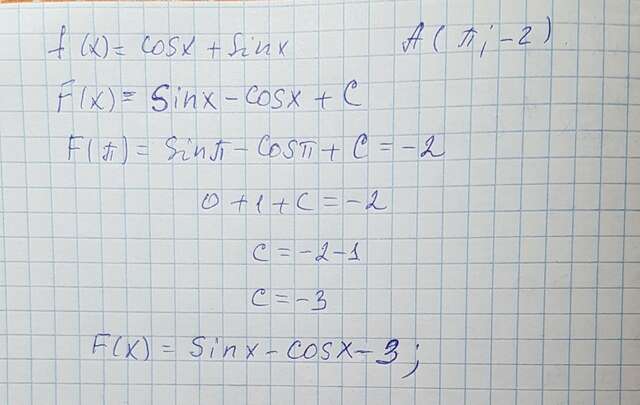 f(x) = cosx + sinx A(π; -2).
F(x) = sinx - cosx + C
F(π) = sinπ - cosπ + C = -2
0 + 1 + C = -2
C = -2 - 1
C = -3
F(x) = sinx - cosx - 3;